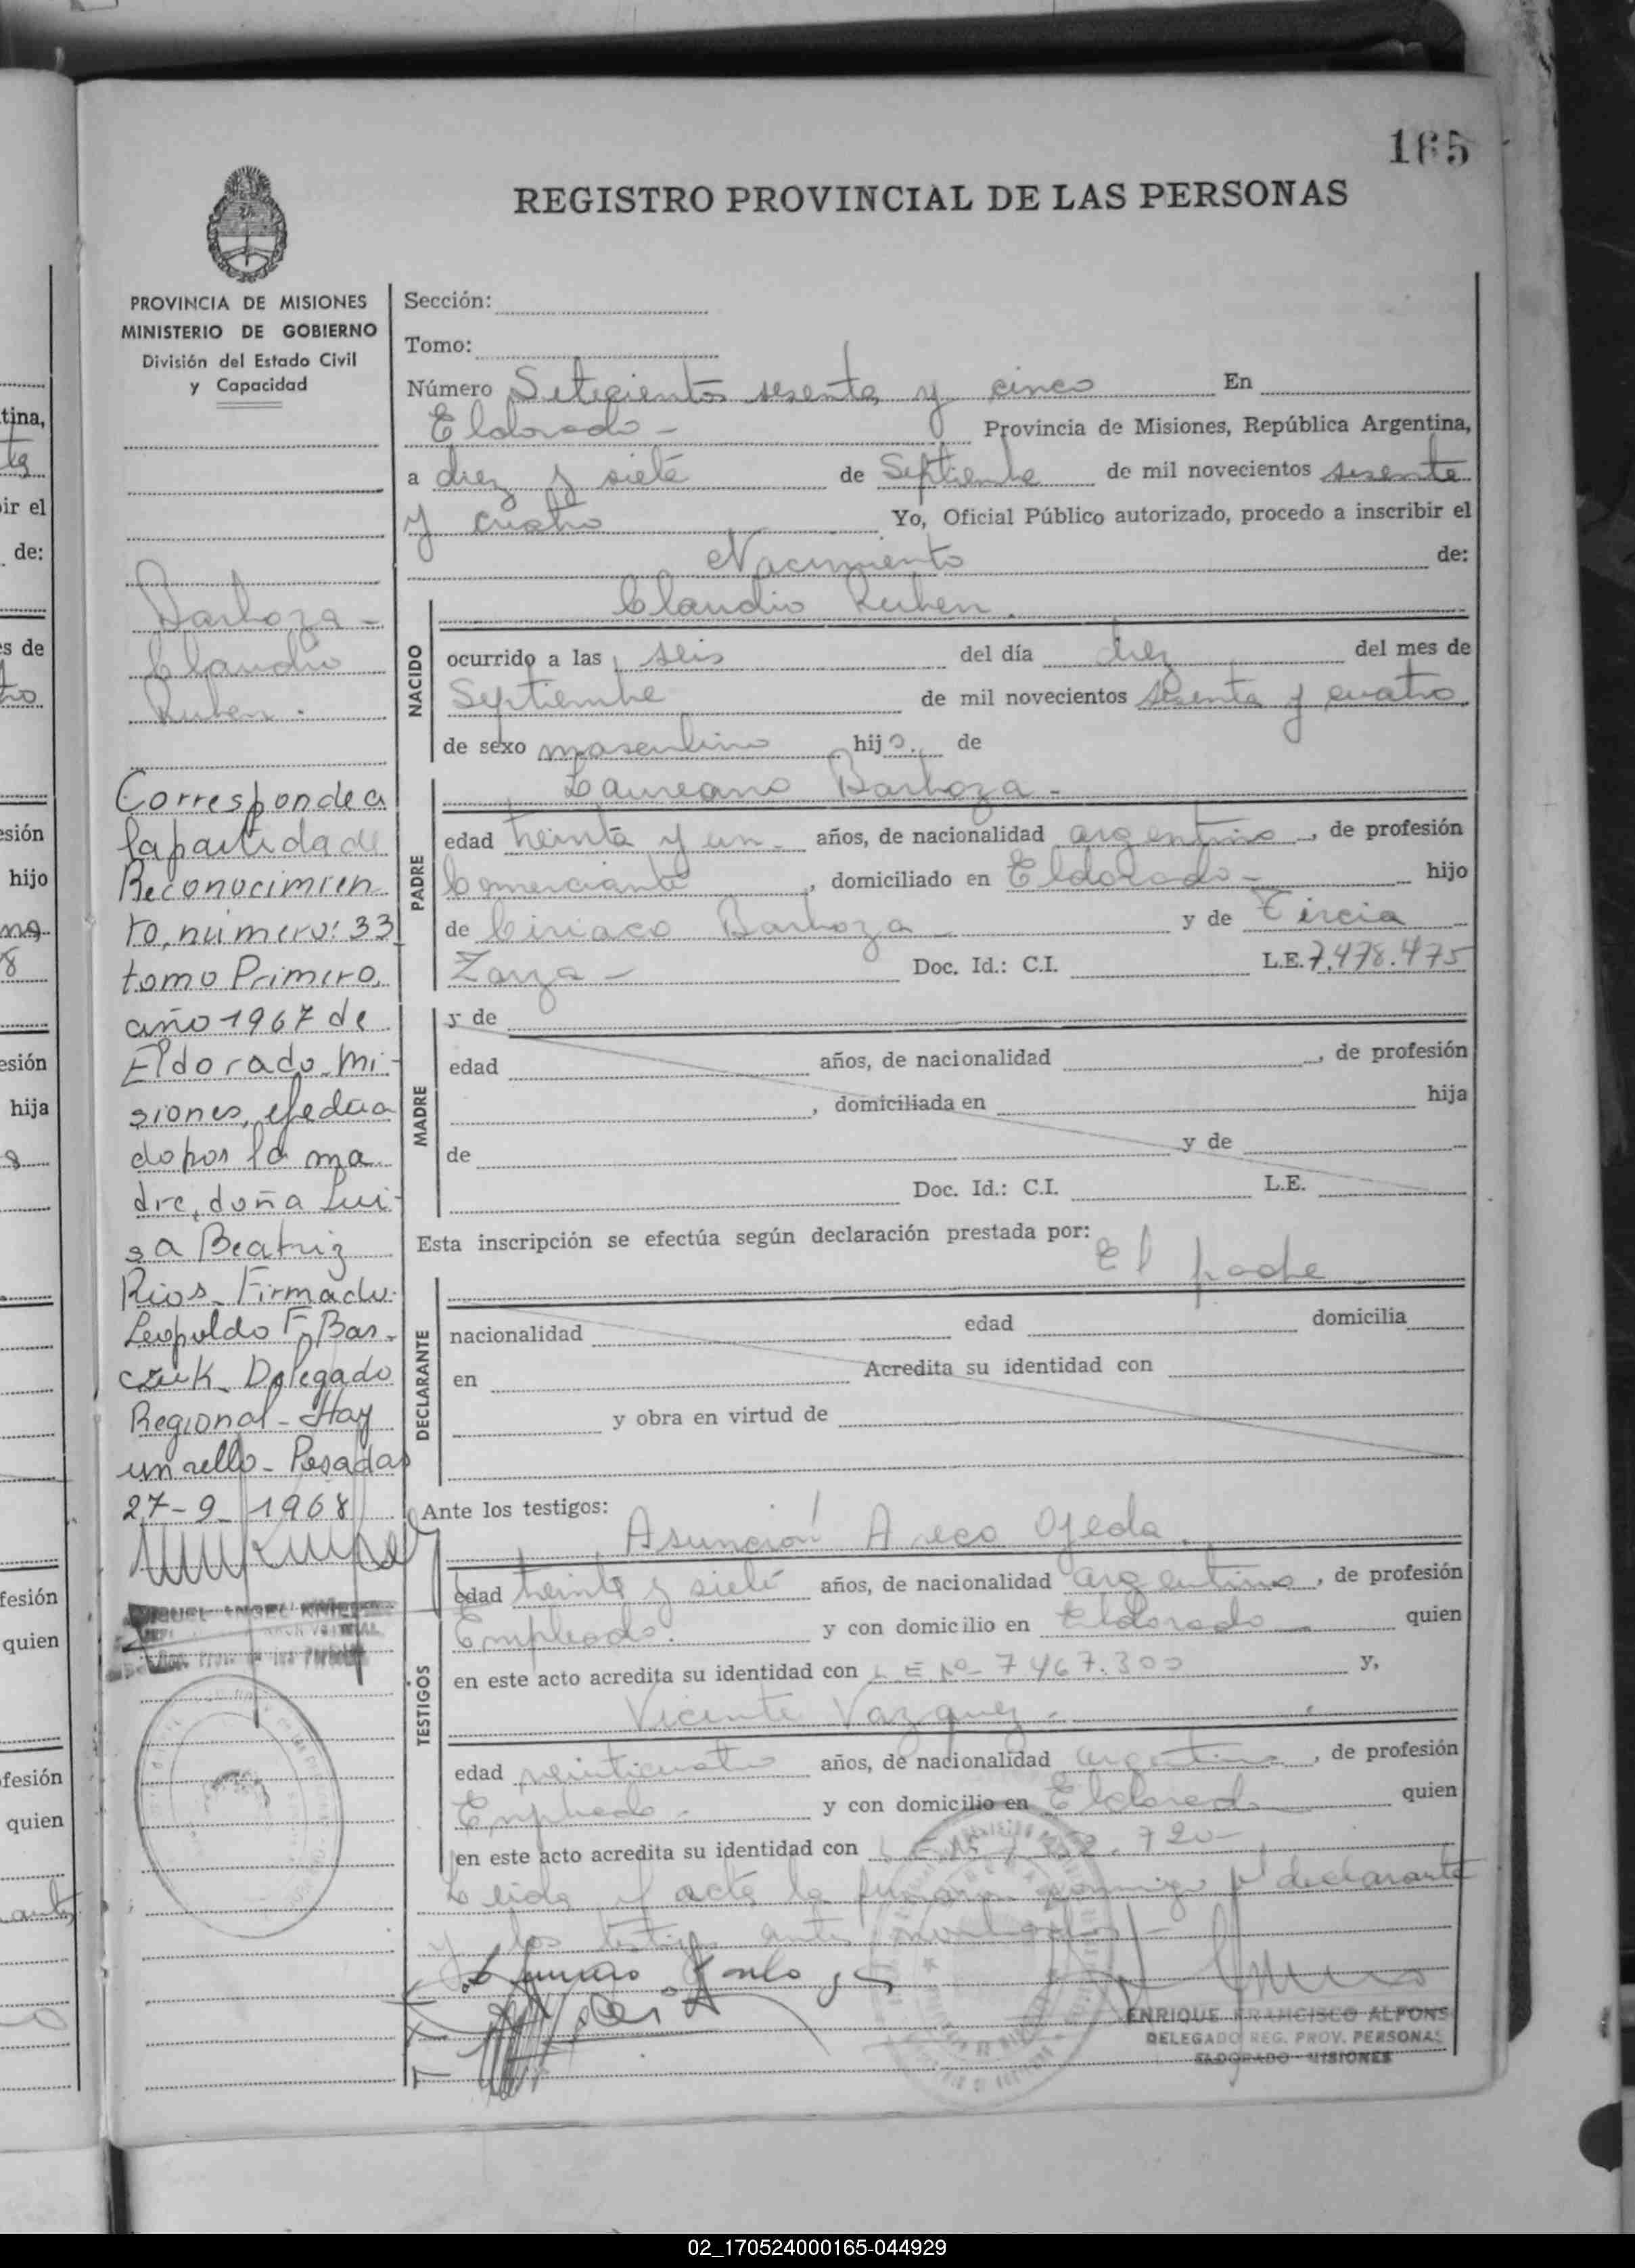 165
REGISTRO PROVINCIAL DE LAS PERSONAS
PROVINCIA DE MISIONES
MINISTERIO DE GOBIERNO
División del Estado Civil
y Capacidad
Barboza -
Claudio
Ruben.
Corresponde a
la partida de
Reconocimien
to, número: 33
tomo Primero,
año 1967 de
Eldorado-Mi-
siones, efectua
do por la ma
dre, doña Lui-
sa Beatriz
Rios. Firmado.
Leopoldo F. Bas-
czuk Delegado
Regional - Hay
un sello - Posadas
27-9-1968
Sección:
Tomo:
Número Setecientos sesenta y cinco En
Eldorado - Provincia de Misiones, República Argentina,
a diez y siete de Septiembre de mil novecientos sesenta
y cuatro Yo, Oficial Público autorizado, procedo a inscribir el
Nacimiento de:
Claudio Ruben.
NACIDO
ocurrido a las seis del día diez del mes de
Septiembre de mil novecientos sesenta y cuatro
de sexo masculino hijo. de
Laureano Barboza -
PADRE
edad treinta y un - años, de nacionalidad argentino, de profesión
Comerciante, domiciliado en Eldorado - hijo
de Ciriaco Barboza - y de Tircia
Zarza - Doc. Id.: C.I. L.E. 7.478.475
MADRE
y de
edad años, de nacionalidad , de profesión
, domiciliada en hija
de y de
Doc. Id.: C.I. L.E.
Esta inscripción se efectúa según declaración prestada por:
El padre
DECLARANTE
nacionalidad edad domicilia
en Acredita su identidad con
y obra en virtud de
Ante los testigos:
Asunción Areco Ojeda.
TESTIGOS
edad treinta y siete años, de nacionalidad argentino, de profesión
Empleado. y con domicilio en Eldorado quien
en este acto acredita su identidad con L E Nº 7467.300 y,
Vicente Vazquez -
edad veinticuatro años, de nacionalidad argentino, de profesión
Empleado - y con domicilio en Eldorado quien
en este acto acredita su identidad con 720-
Leida el acta la firmaron conmigo el declarante
y los testigos antes nombrados -
ENRIQUE FRANCISCO ALFONS
DELEGADO REG. PROV. PERSONAS
ELDORADO - MISIONES
02_170524000165-044929